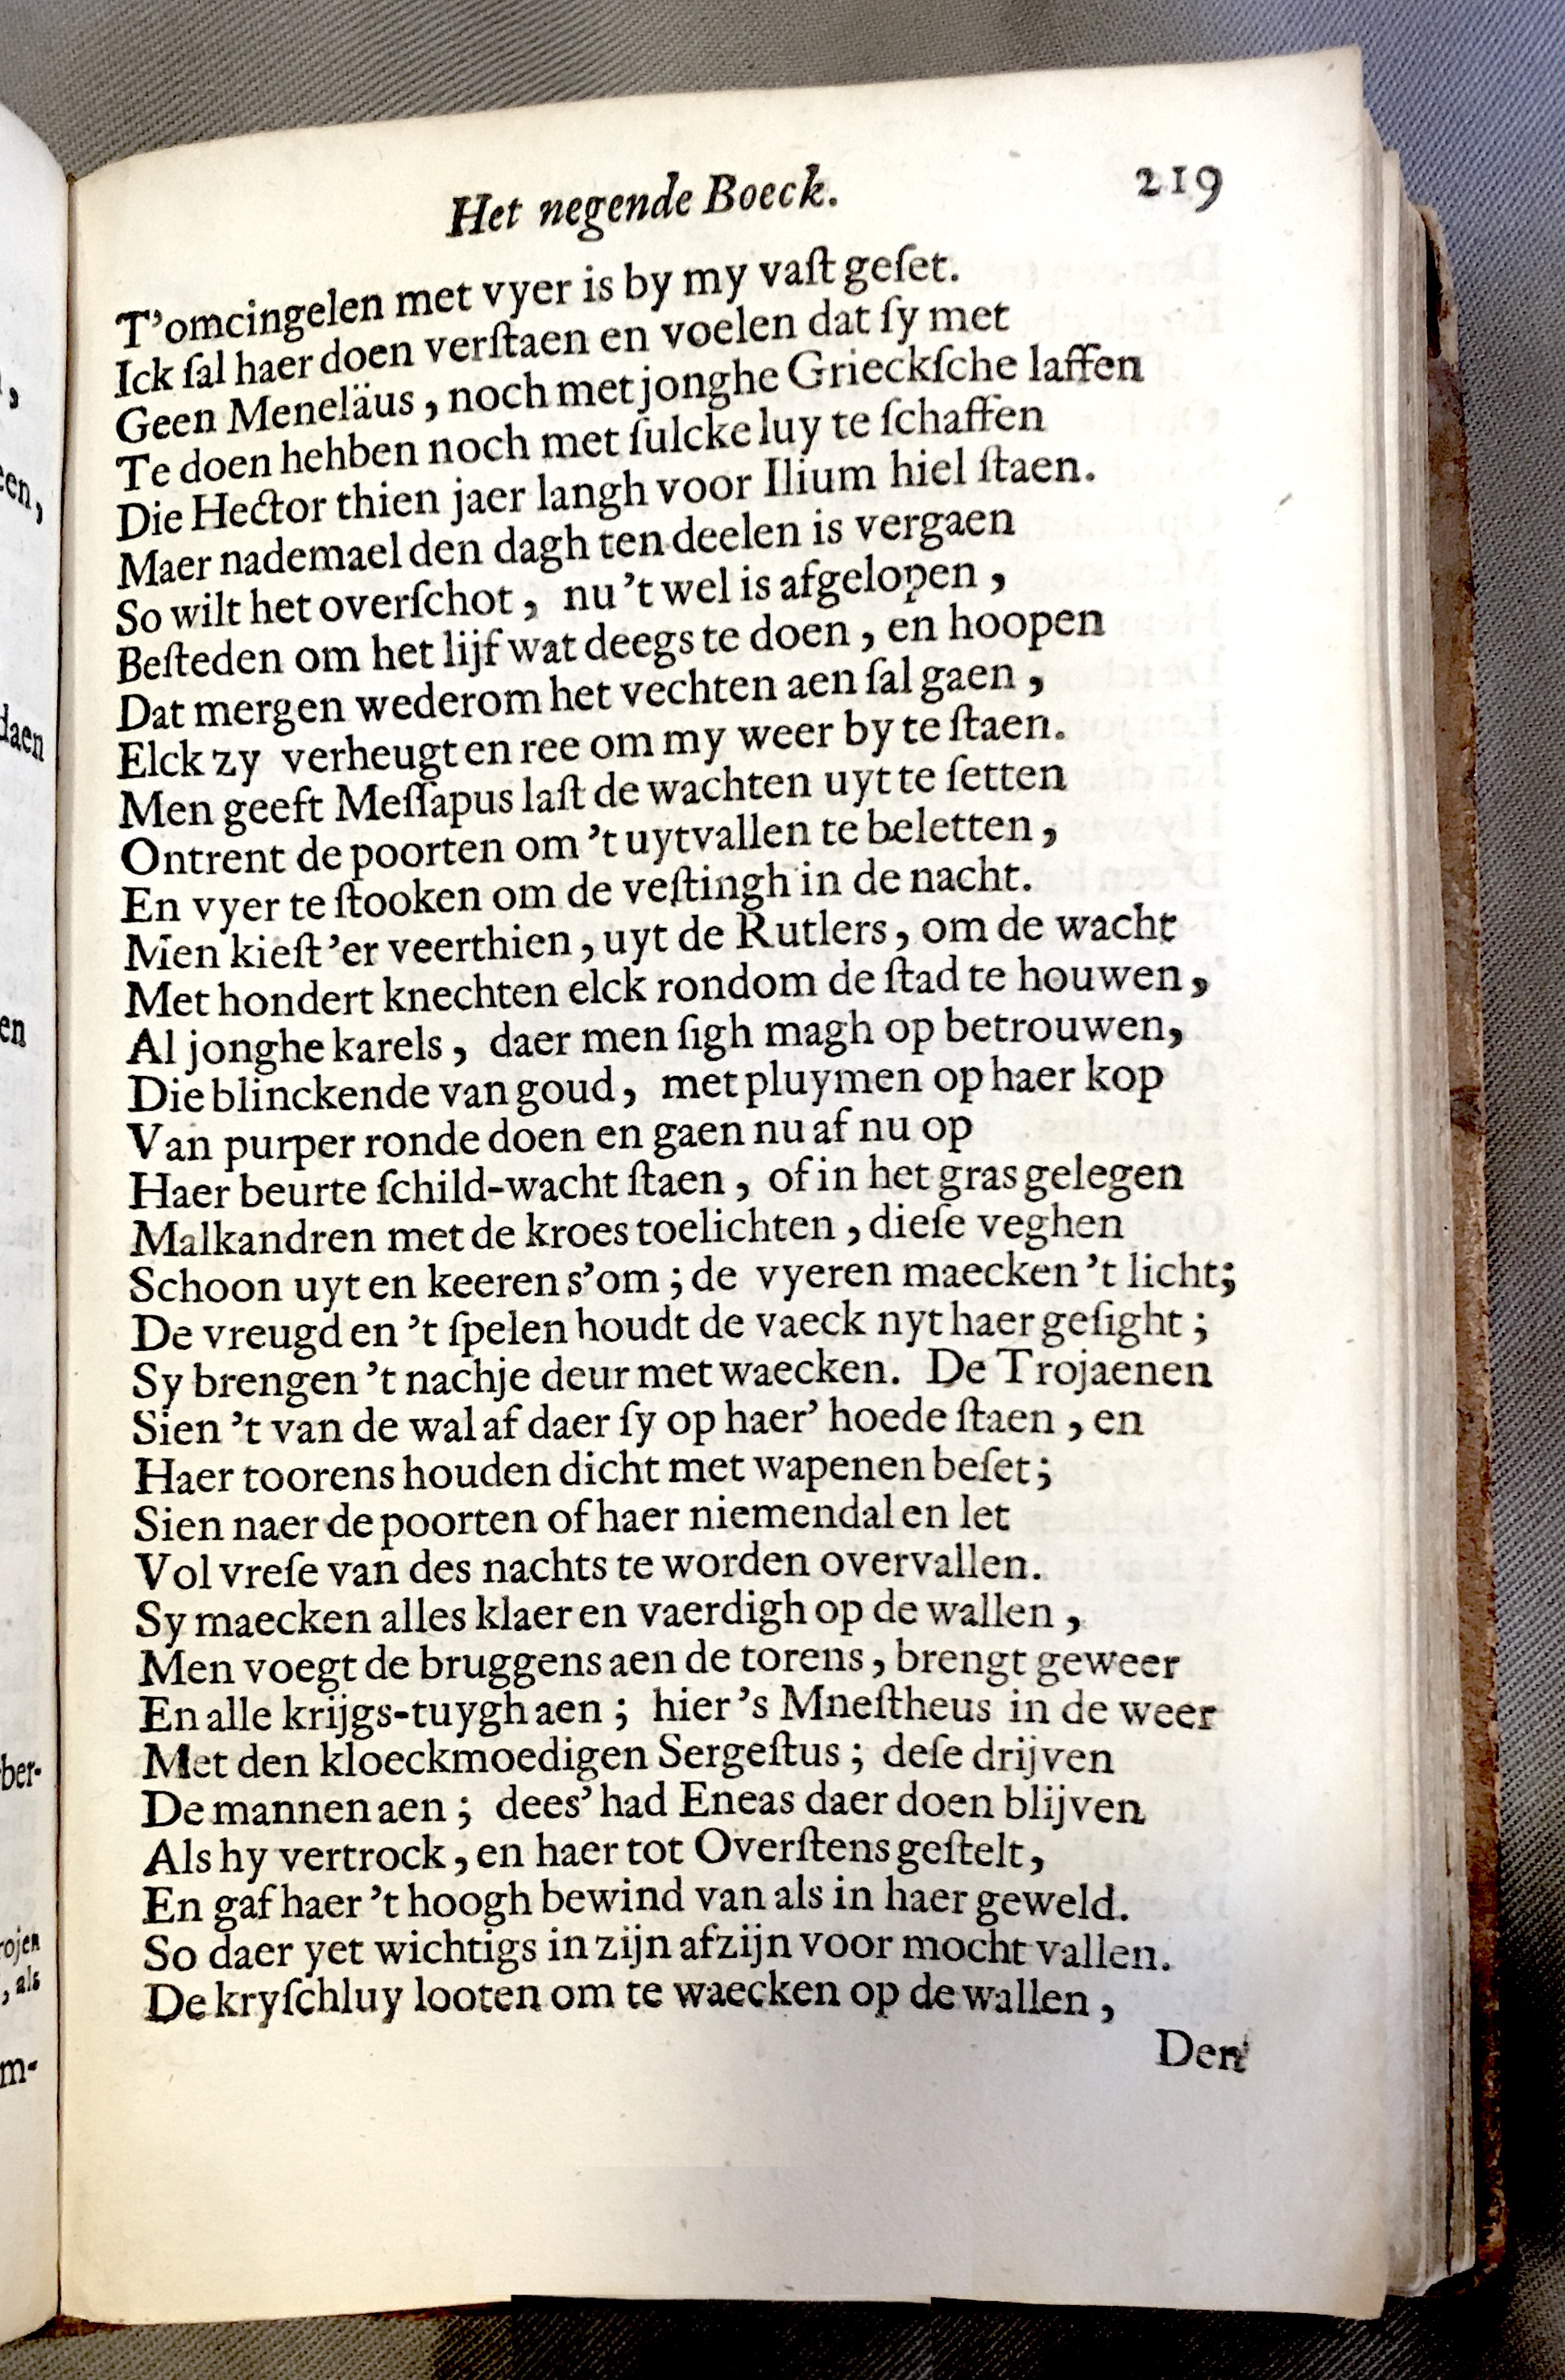 Het negende Boeck. 219
T'omcingelen met vyer is by my vaſt geſet.
Ick ſal haer doen verſtaen en voelen dat ſy met
Geen Meneläus, noch met jonghe Grieckſche laffen
Te doen hehben noch met ſulcke luy te ſchaffen
Die Hector thien jaer langh voor Ilium hiel ſtaen.
Maer nademael den dagh ten deelen is vergaen
So wilt het overſchot, nu 't wel is afgelopen,
Beſteden om het lijf wat deegs te doen, en hoopen
Dat mergen wederom het vechten aen ſal gaen,
Elck zy verheugt en ree om my weer by te ſtaen.
Men geeft Meſſapus laſt de wachten uyt te ſetten
Ontrent de poorten om 't uytvallen te beletten,
En vyer te ſtooken om de veſtingh in de nacht.
Men kieſt 'er veerthien, uyt de Rutlers, om de wacht
Met hondert knechten elck rondom de ſtad te houwen,
Al jonghe karels, daer men ſigh magh op betrouwen,
Die blinckende van goud, met pluymen op haer kop
Van purper ronde doen en gaen nu af nu op
Haer beurte ſchild-wacht ſtaen, of in het gras gelegen
Malkandren met de kroes toelichten, dieſe veghen
Schoon uyt en keeren s'om; de vyeren maecken 't licht;
De vreugd en 't ſpelen houdt de vaeck nyt haer geſight;
Sy brengen 't nachje deur met waecken. De Trojaenen
Sien 't van de wal af daer ſy op haer' hoede ſtaen, en
Haer toorens houden dicht met wapenen beſet;
Sien naer de poorten of haer niemendal en let
Vol vreſe van des nachts te worden overvallen.
Sy maecken alles klaer en vaerdigh op de wallen,
Men voegt de bruggens aen de torens, brengt geweer
En alle krijgs-tuygh aen; hier 's Mneſtheus in de weer
Met den kloeckmoedigen Sergeſtus; deſe drijven
De mannen aen; dees' had Eneas daer doen blijven
Als hy vertrock, en haer tot Overſtens geſtelt,
En gaf haer 't hoogh bewind van als in haer geweld.
So daer yet wichtigs in zijn afzijn voor mocht vallen.
De kryſchluy looten om te waecken op de wallen,
Den